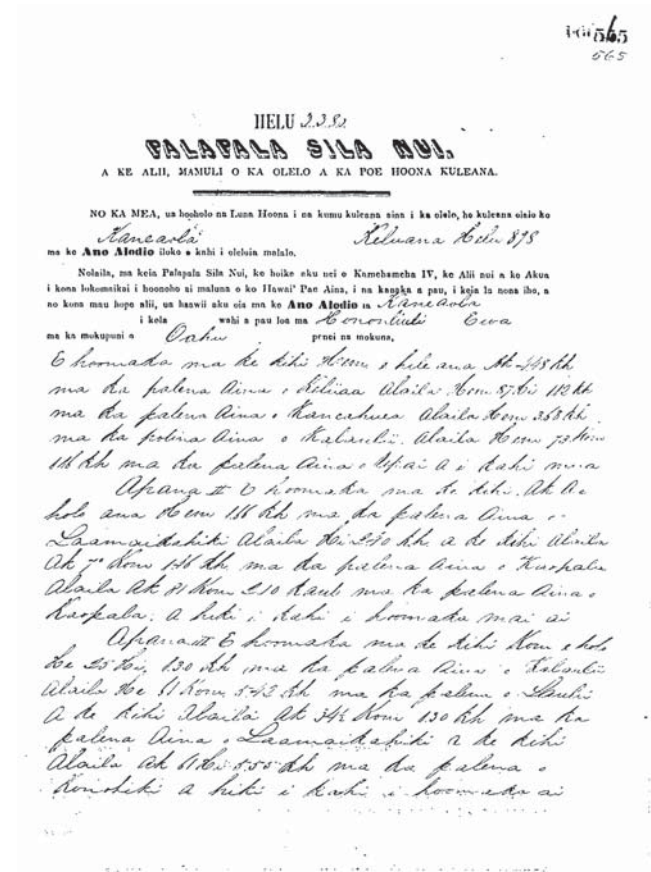 565
565
HELU
PALAPALA SILA NUI,
A KE ALII, MAMULI O KA OLELO A KA POE HOONA KULEANA.
NO KA MEA, ua hooholo na Luna Hoona i na kumu kuleana aina i ka olelo, he kuleana oiaio ko
Kaneaola Kuleana Helu 898
ma ke Ano Alodio iloko o kahi i oleloia malalo.
Nolaila, ma keia Palapala Sila Nui, ke hoike aku nei o Kamehameha IV, ke Alii nui a ke Akua
i kona lokomaikai i hoonoho ai maluna o ko Hawai' Pae Aina, i na kanaka a pau, i keia la nona iho, a
no kona mau hope alii, ua haawii aku oia ma ke Ano Alodio ia Kaneaola
i kela wahi a pau loa ma Honouliuli Ewa
ma ka mokupuni o Oahu penei na mokuna,
E hoomaka ma ke kihi Hem e hele ana Ak 448 kh
ma ka palena Aina o Alaila Hem 87 Hi 112 kh
ma ka palena Aina o Alaila Hem 358 kh
ma ka Aina o Alaila Hem 73 Kom
116 kh ma ka palena Aina o a i kahi mua
Apana II E hoomaka ma ke kihi Ak
holo ana Hem kh ma ka palena Aina o
Laamaikahiki Alaila Hi kh a ke kihi Alaila
Ak Kom kh ma ka palena Aina o Kaopala
Alaila Ak 81 Kom 210 kaul ma ka palena Aina o
Kaopala: a hiki i kahi i hoomaka mai ai
Apana III E hoomaka ma ke kihi Kom e holo
He 25 Hi, 130 kh ma ka palena Aina o
Alaila He 61 Kom 542 kh ma ka palena o
A ke kihi Alaila Ak 34½ Kom 130 kh ma ka
palena Aina o Laamaikahiki a ke kihi
Alaila Ak 61 Hi 555 kh ma ka palena o
Konohiki a hiki i kahi i hoomaka ai